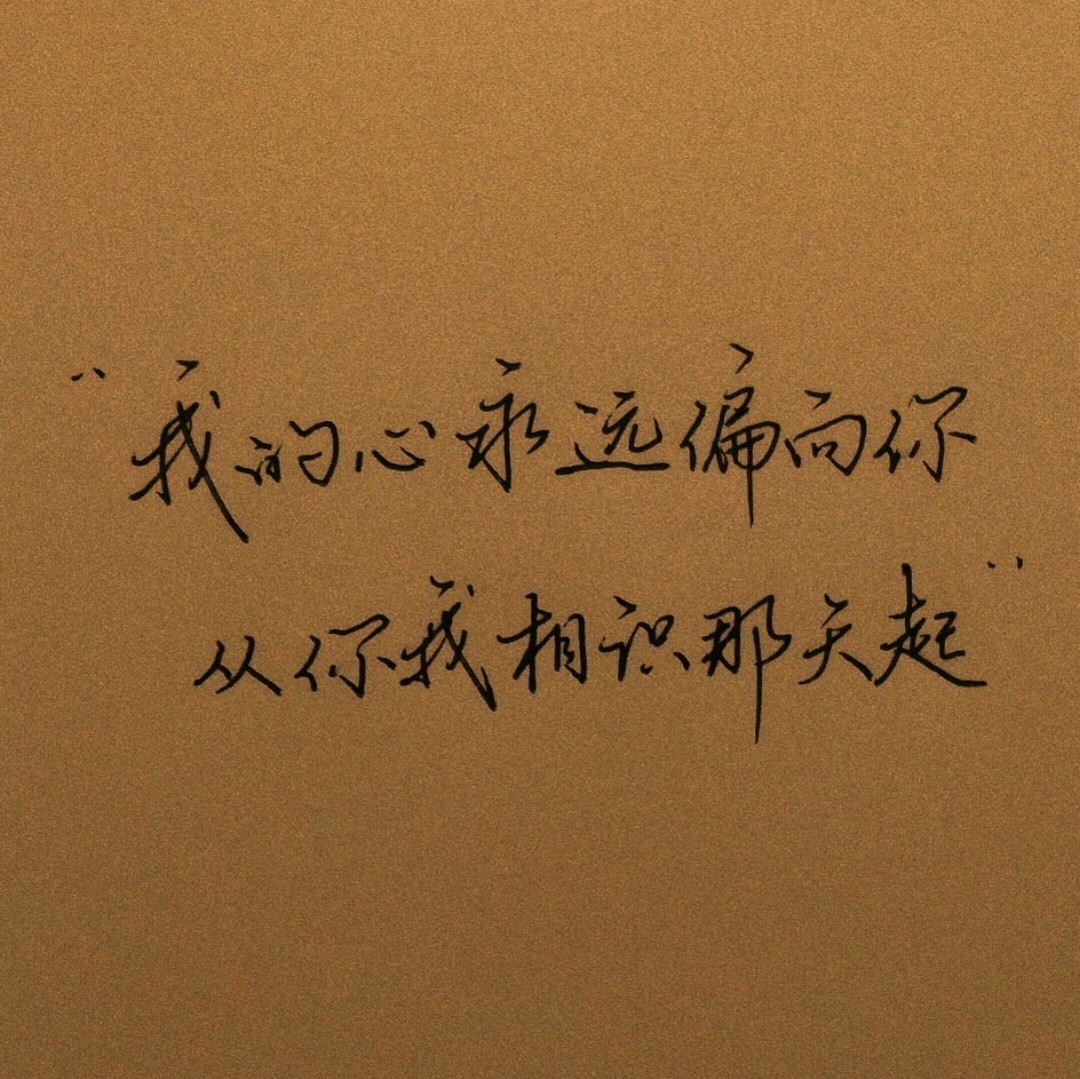 “我的心永远偏向你
从你我相识那天起”